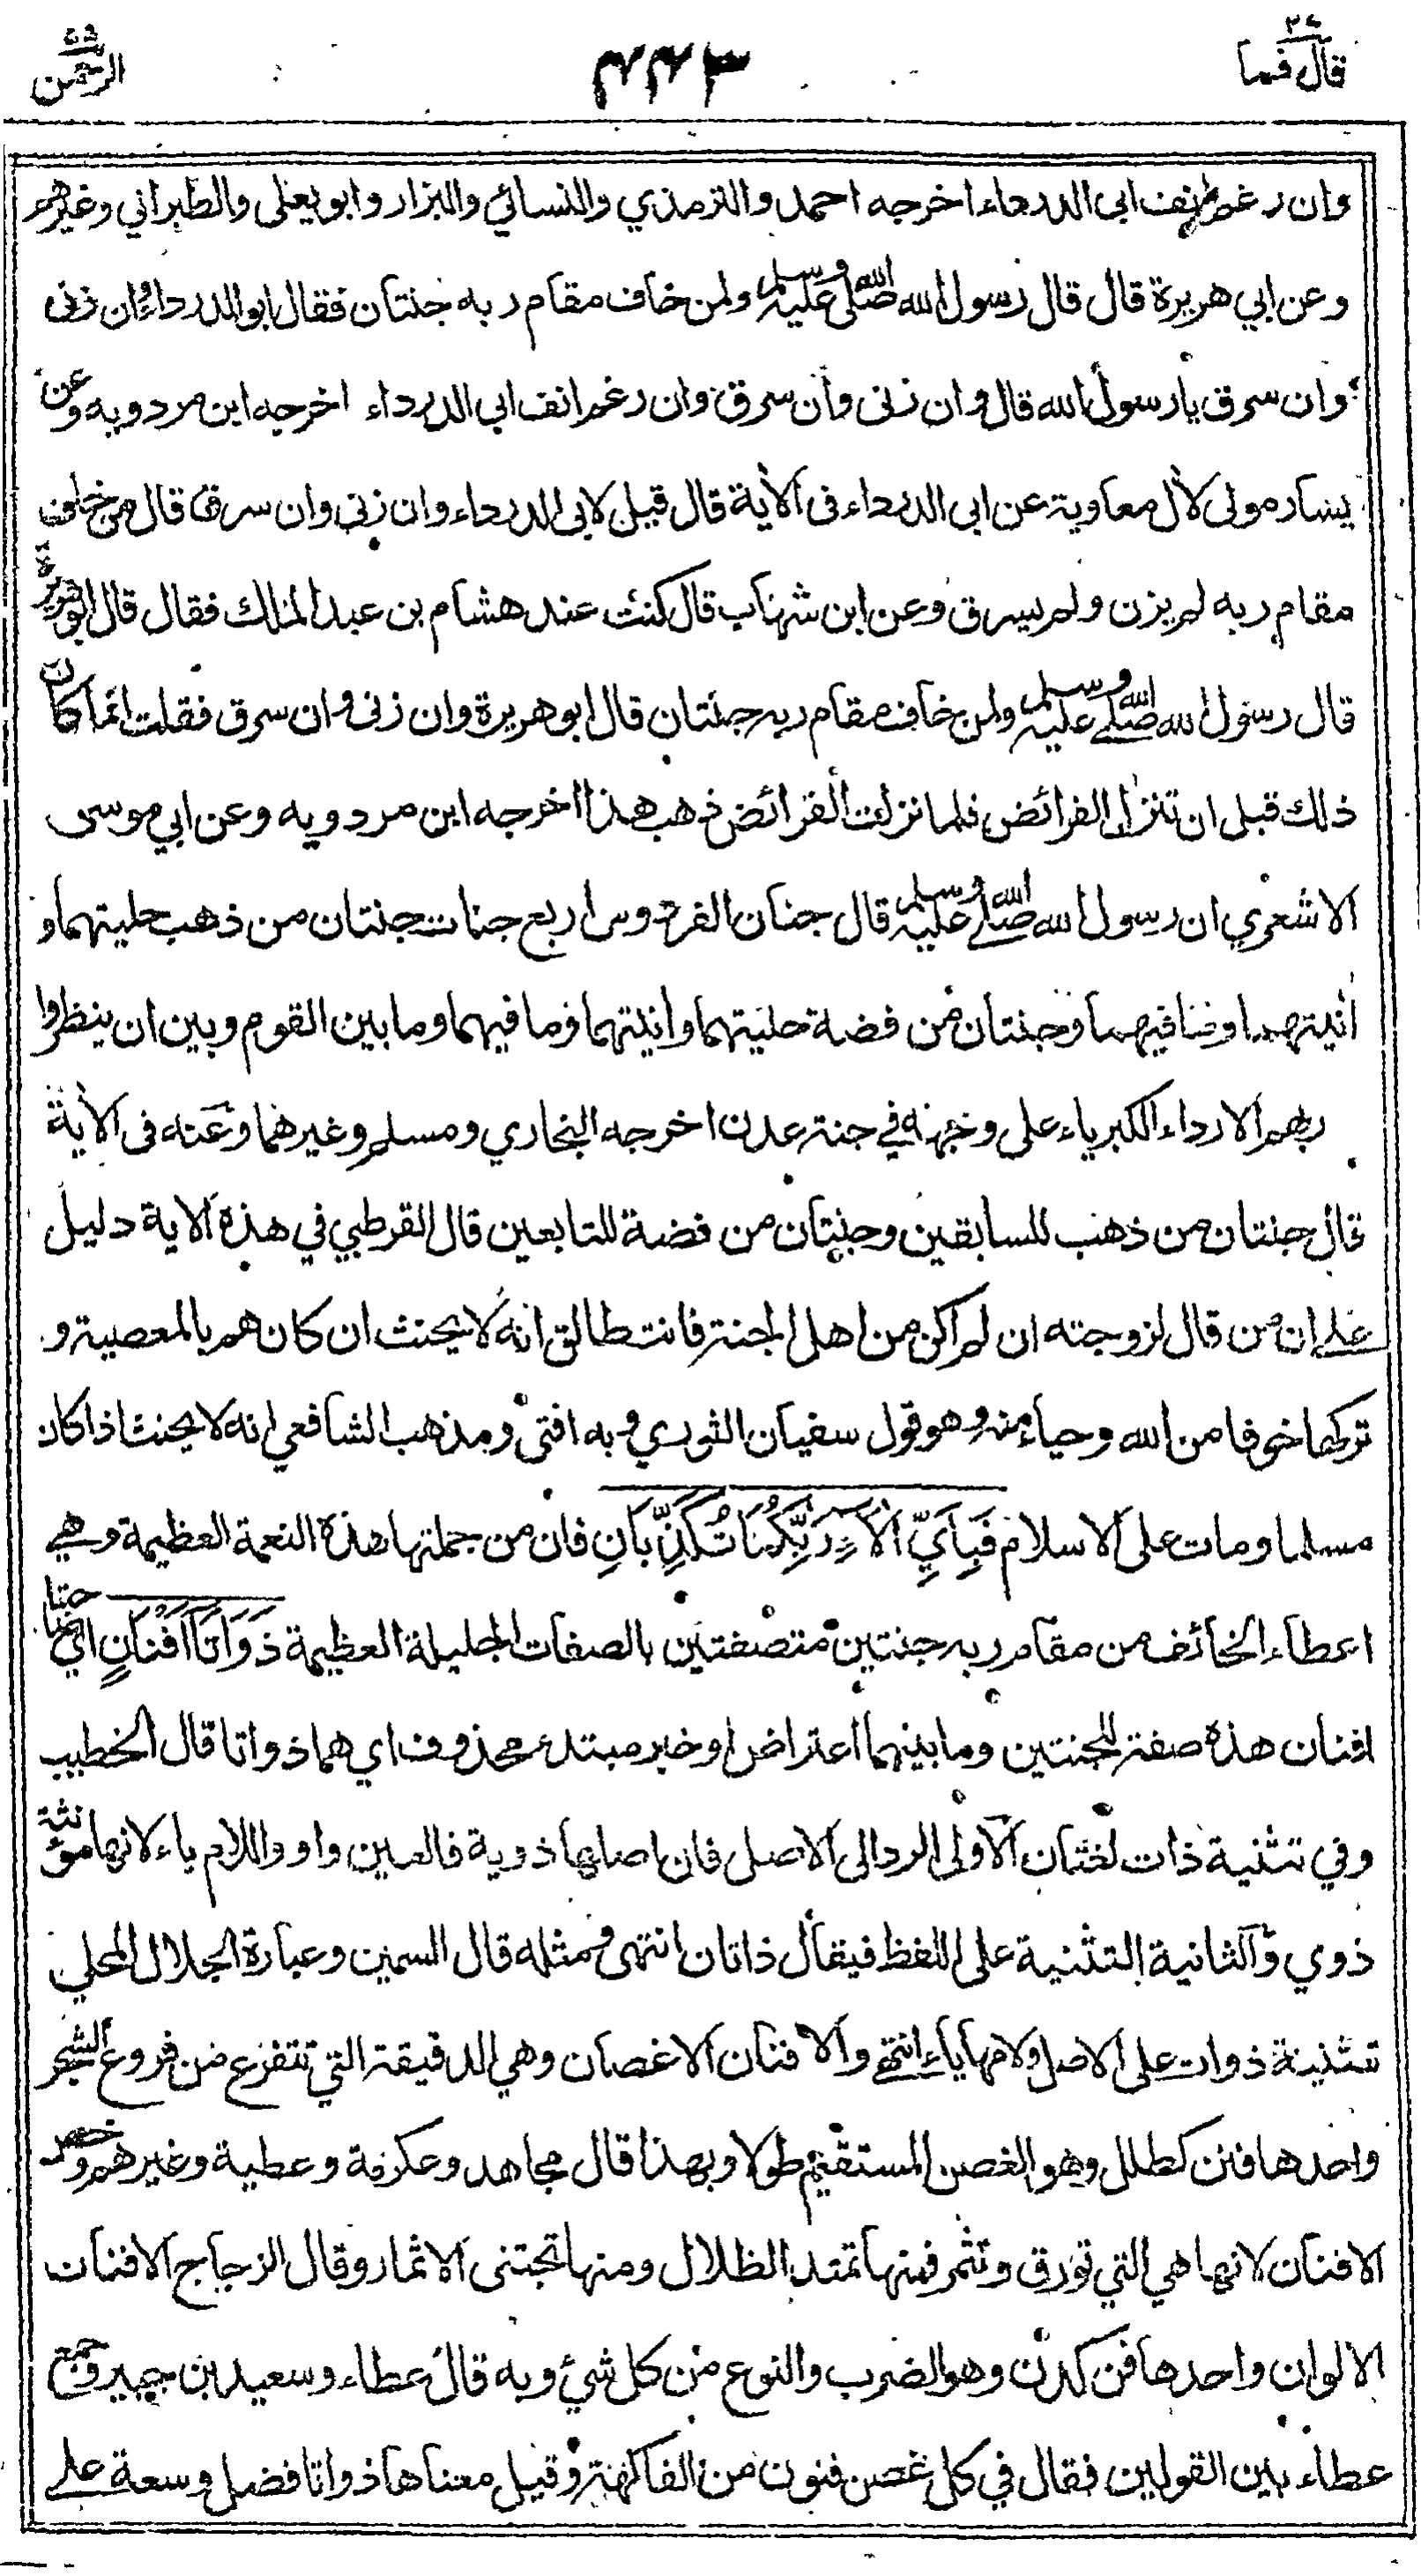 قال فما ٢٧
الرحمن ٥٥
وان رغم انف ابي الدرداء اخرجه احمد والترمذي والنسائي والبزار وابو يعلى والطبراني وغيرهم
وعن ابي هريرة قال قال رسول الله صلى الله عليه وسلم ولمن خاف مقام ربه جنتان فقال ابو الدرداء وان زنى
وان سرق يا رسول الله قال وان زنى وان سرق وان رغم انف ابي الدرداء اخرجه ابن مردويه وعن
يسار مولى لآل معاوية عن ابي الدرداء في الآية قال قيل لابي الدرداء وان زنى وان سرق قال من خاف
مقام ربه لم يزن ولم يسرق وعن ابن شهاب قال كنت عند هشام بن عبد الملك فقال قال ابو هريرة
قال رسول الله صلى الله عليه وسلم ولمن خاف مقام ربه جنتان قال ابو هريرة وان زنى وان سرق فقلت انما كان
ذلك قبل ان تنزل الفرائض فلما نزلت الفرائض ذهب هذا اخرجه ابن مردويه وعن ابي موسى
الاشعري ان رسول الله صلى الله عليه وسلم قال جنان الفردوس اربع جنات جنتان من ذهب حليتهما و
آنيتهما وما فيهما وجنتان من فضة حليتهما وآنيتهما وما فيهما وما بين القوم وبين ان ينظروا
ربهم الا رداء الكبرياء على وجهه في جنة عدن اخرجه البخاري ومسلم وغيرهما وعنه في الآية
قال جنتان من ذهب للسابقين وجنتان من فضة للتابعين قال القرطبي في هذه الآية دليل
على ان من قال لزوجته ان لم اكن من اهل الجنة فانت طالق انه لا يحنث ان كان هم بالمعصية و
تركها خوفا من الله وحياء منه وهو قول سفيان الثوري وبه افتى ومذهب الشافعي انه لا يحنث اذا كان
مسلما ومات على الاسلام فَبِأَيِّ آلَاءِ رَبِّكُمَا تُكَذِّبَانِ فان من جملتها هذه النعمة العظيمة وهي
اعطاء الخائف من مقام ربه جنتين متصفتين بالصفات الجليلة العظيمة ذَوَاتَا أَفْنَانٍ اي
افنان هذه صفة للجنتين وما بينهما اعتراض او خبر مبتدء محذوف اي هما ذواتا قال الخطيب
وفي تثنية ذات لغتان الاولى الرد الى الاصل فان اصلها ذوية فالعين واو واللام ياء لانها مؤنثة
ذوي والثانية التثنية على اللفظ فيقال ذاتان انتهى ومثله قال السمين وعبارة الجلال المحلي
تثنية ذوات على الاصل ولامها ياء انتهى والافنان الاغصان وهي الدقيقة التي تتفرع من فروع الشجر
واحدها فنن كطلل وهو الغصن المستقيم طولا وبهذا قال مجاهد وعكرمة وعطية وغيرهم وخص
الافنان لانها هي التي تورق وتثمر فمنها تمتد الظلال ومنها تجتنى الاثمار وقال الزجاج الافنان
الالوان واحدها فن كدن وهو الضرب والنوع من كل شيء وبه قال عطاء وسعيد بن جبير وجمع
عطاء بين القولين فقال في كل غصن فنون من الفاكهة وقيل معناها ذواتا فضل وسعة على